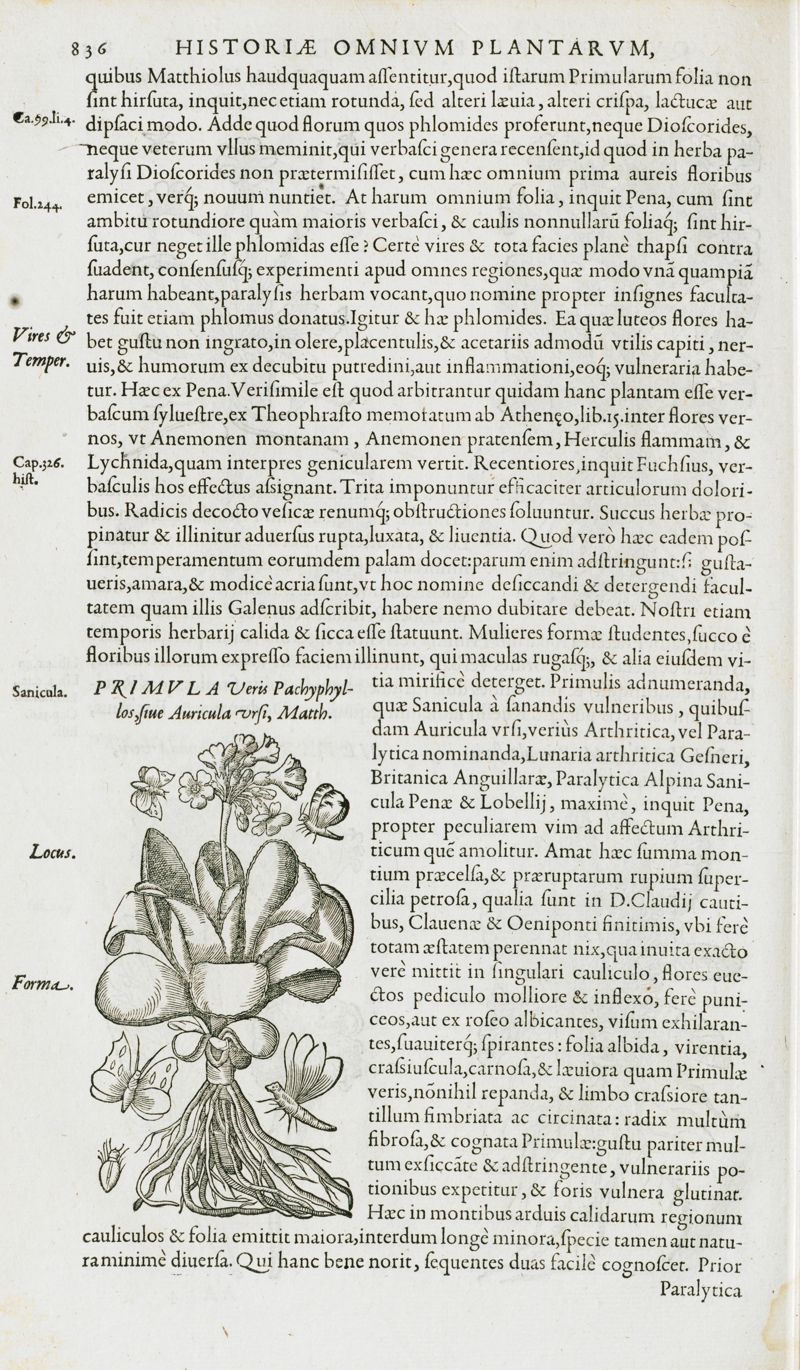 836 HISTORIÆ OMNIVM PLANTARVM,
quibus Matthiolus haudquaquam aſſentitur,quod iſtarum Primularum folia non
ſint hirſuta, inquit,nec etiam rotunda, ſed alteri læuia, alteri criſpa, lactucæ aut
Ca.99.li.4.
dipſaci modo. Adde quod florum quos phlomides proferunt,neque Dioſcorides,
neque veterum vllus meminit,qui verbaſci genera recenſent,id quod in herba pa-
ralyſi Dioſcorides non prætermiſiſſet, cum hæc omnium prima aureis floribus
Fol.244.
emicet, verq́; nouum nuntiet. At harum omnium folia, inquit Pena, cum ſint
ambitu rotundiore quàm maioris verbaſci, & caulis nonnullarũ foliaq́; ſint hir-
ſuta,cur neget ille phlomidas eſſe? Certè vires & tota facies planè thapſi contra
ſuadent, conſenſuſq́; experimenti apud omnes regiones,quæ modo vnã quampiã
harum habeant,paralyſis herbam vocant,quo nomine propter inſignes faculta-
tes fuit etiam phlomus donatus.Igitur & hæ phlomides. Ea quæ luteos flores ha-
Vires &
Temper.
bet guſtu non ingrato,in olere,placentulis,& acetariis admodũ vtilis capiti, ner-
uis,& humorum ex decubitu putredini,aut inflammationi,eoq́; vulneraria habe-
tur. Hæc ex Pena.Veriſimile eſt quod arbitrantur quidam hanc plantam eſſe ver-
baſcum ſylueſtre,ex Theophraſto memoratum ab Athenęo,lib.15.inter flores ver-
nos, vt Anemonen montanam, Anemonen pratenſem, Herculis flammam, &
Cap.326.
hiſt.
Lychnida,quam interpres genicularem vertit. Recentiores,inquit Fuchſius, ver-
baſculis hos effectus aſsignant. Trita imponuntur efficaciter articulorum dolori-
bus. Radicis decocto veſicæ renumq́; obſtructiones ſoluuntur. Succus herbæ pro-
pinatur & illinitur aduerſus rupta,luxata, & liuentia. Quod verò hæc eadem poſ-
ſint,temperamentum eorumdem palam docet:parum enim adſtringunt:ſi guſta-
ueris,amara,& modicè acria ſunt,vt hoc nomine deſiccandi & detergendi facul-
tatem quam illis Galenus adſcribit, habere nemo dubitare debeat. Noſtri etiam
temporis herbarij calida & ſicca eſſe ſtatuunt. Mulieres formæ ſtudentes,ſucco è
floribus illorum expreſſo faciem illinunt, qui maculas rugaſq́;, & alia eiuſdem vi-
Sanicula.
PRIMVLA Veris Pachyphyl-
los,ſiue Auricula vrſi, Matth.
tia mirificè deterget. Primulis adnumeranda,
quæ Sanicula à ſanandis vulneribus, quibuſ-
dam Auricula vrſi,veriùs Arthritica, vel Para-
lytica nominanda,Lunaria arthritica Geſneri,
Britanica Anguillaræ, Paralytica Alpina Sani-
cula Penæ & Lobellij, maximè, inquit Pena,
propter peculiarem vim ad affectum Arthri-
Locus.
ticum quẽ amolitur. Amat hæc ſumma mon-
tium præcelſa,& præruptarum rupium ſuper-
cilia petroſa, qualia ſunt in D.Claudij cauti-
bus, Clauenæ & Oeniponti finitimis, vbi ferè
totam æſtatem perennat nix,qua inuita exacto
Forma.
verè mittit in ſingulari cauliculo, flores eue-
ctos pediculo molliore & inflexo, ferè puni-
ceos,aut ex roſeo albicantes, viſum exhilaran-
tes,ſuauiterq́; ſpirantes: folia albida, virentia,
craſsiuſcula,carnoſa,& læuiora quam Primulæ
veris,nõnihil repanda, & limbo craſsiore tan-
tillum fimbriata ac circinata: radix multùm
fibroſa,& cognata Primulæ:guſtu pariter mul-
tum exſiccãte & adſtringente, vulnerariis po-
tionibus expetitur, & foris vulnera glutinat.
Hæc in montibus arduis calidarum regionum
cauliculos & folia emittit maiora,interdum longè minora,ſpecie tamen aut natu-
ra minimè diuerſa. Qui hanc bene norit, ſequentes duas facilè cognoſcet. Prior
Paralytica